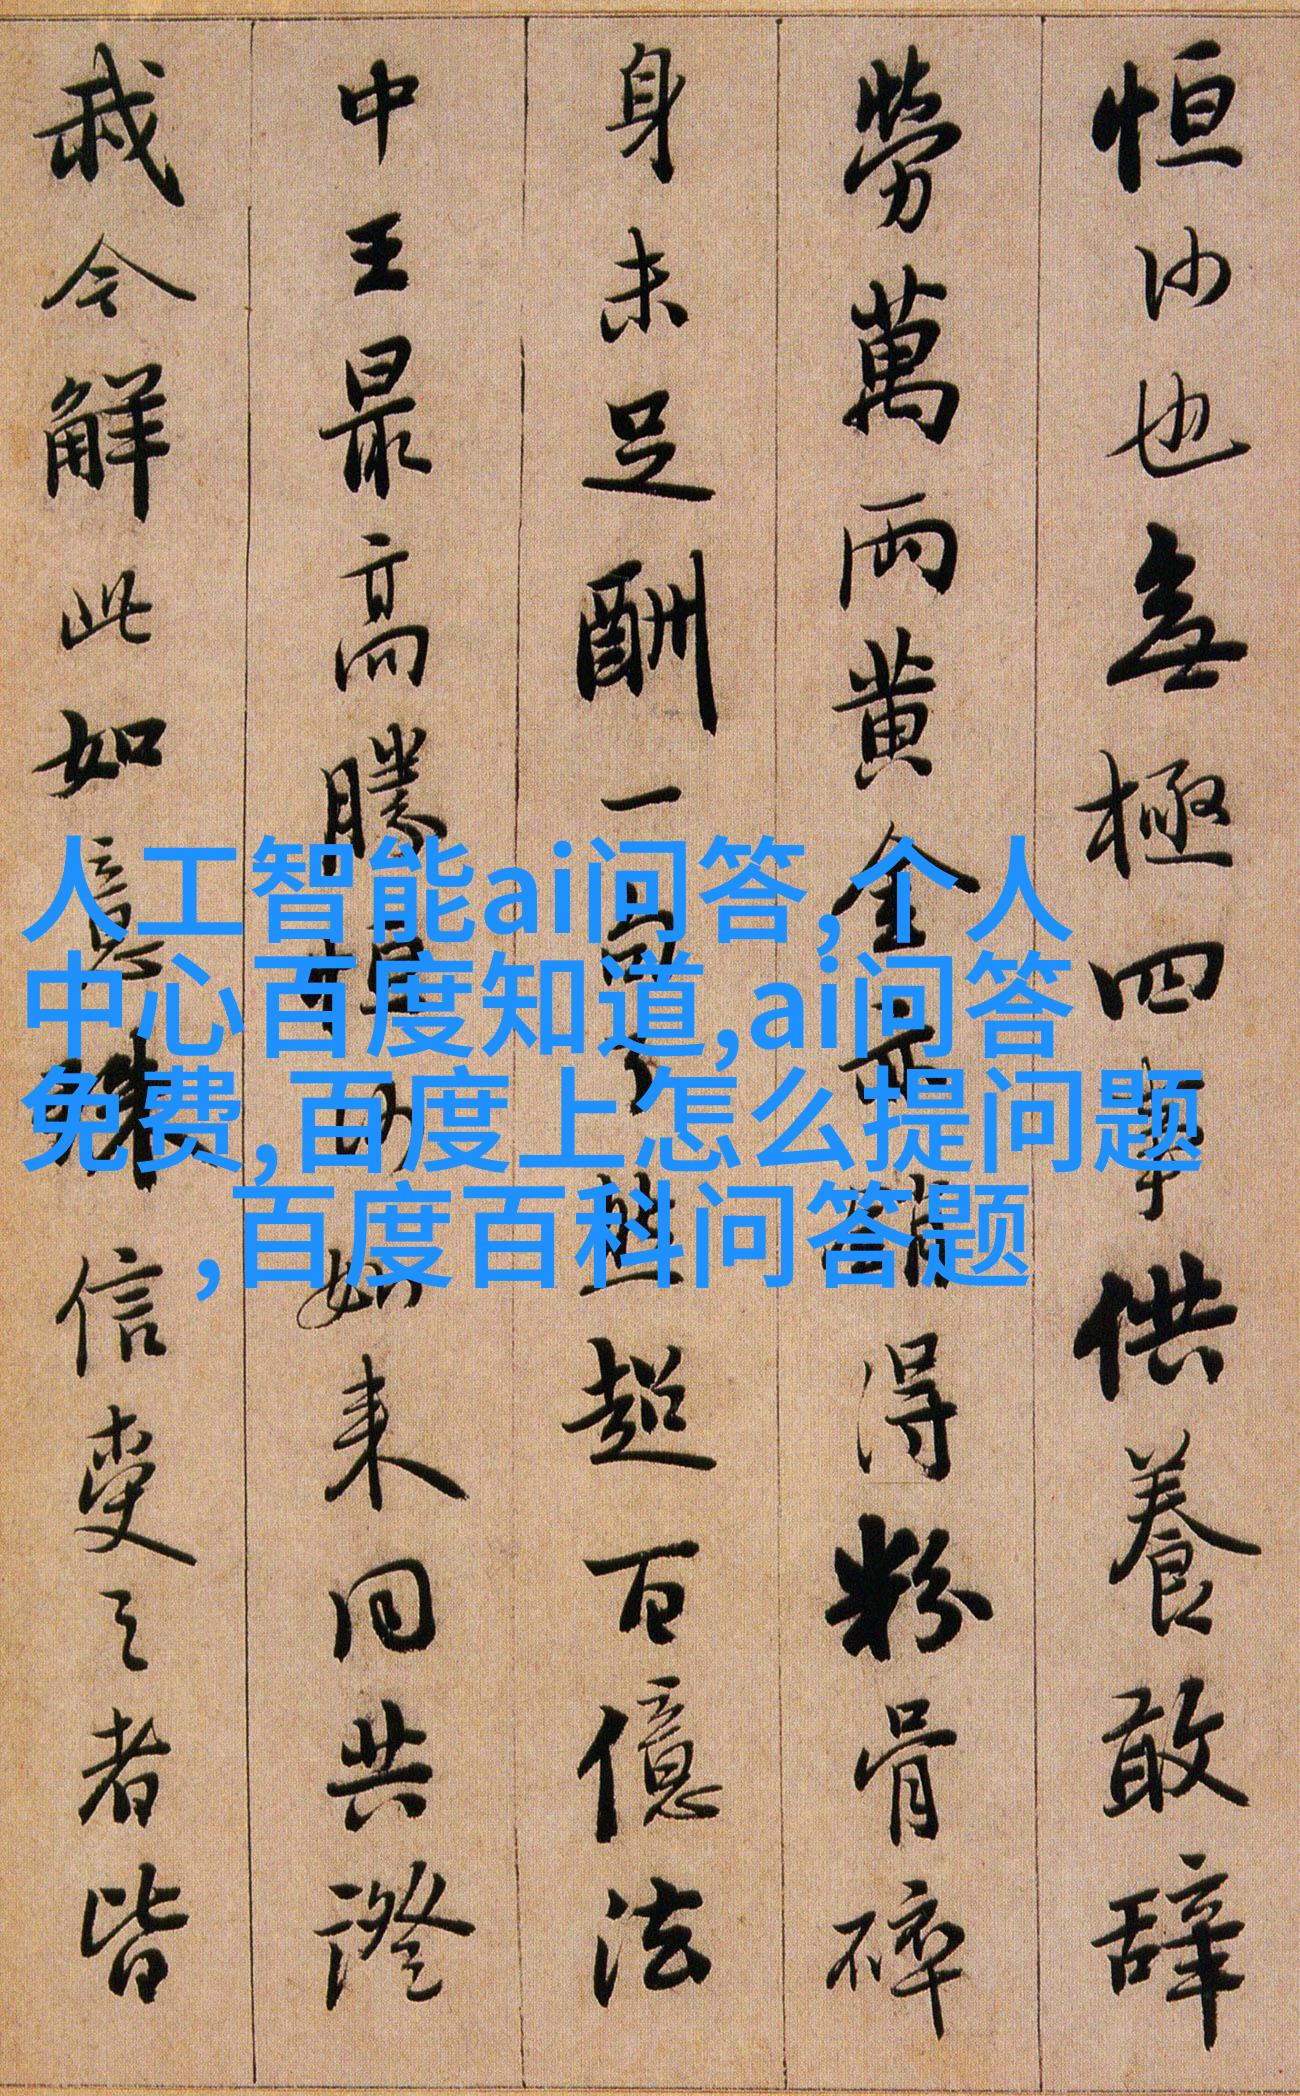 恒沙也無極四事供養敢辭
勞萬兩黄金亦銷得粉骨碎
身未足酬一句了然超百億法
中王最高勝恒沙如来同共證
我今解此如意珠信受之者皆
人工智能ai问答,个人
中心百度知道,ai问答
免费,百度上怎么提问题
,百度百科问答题